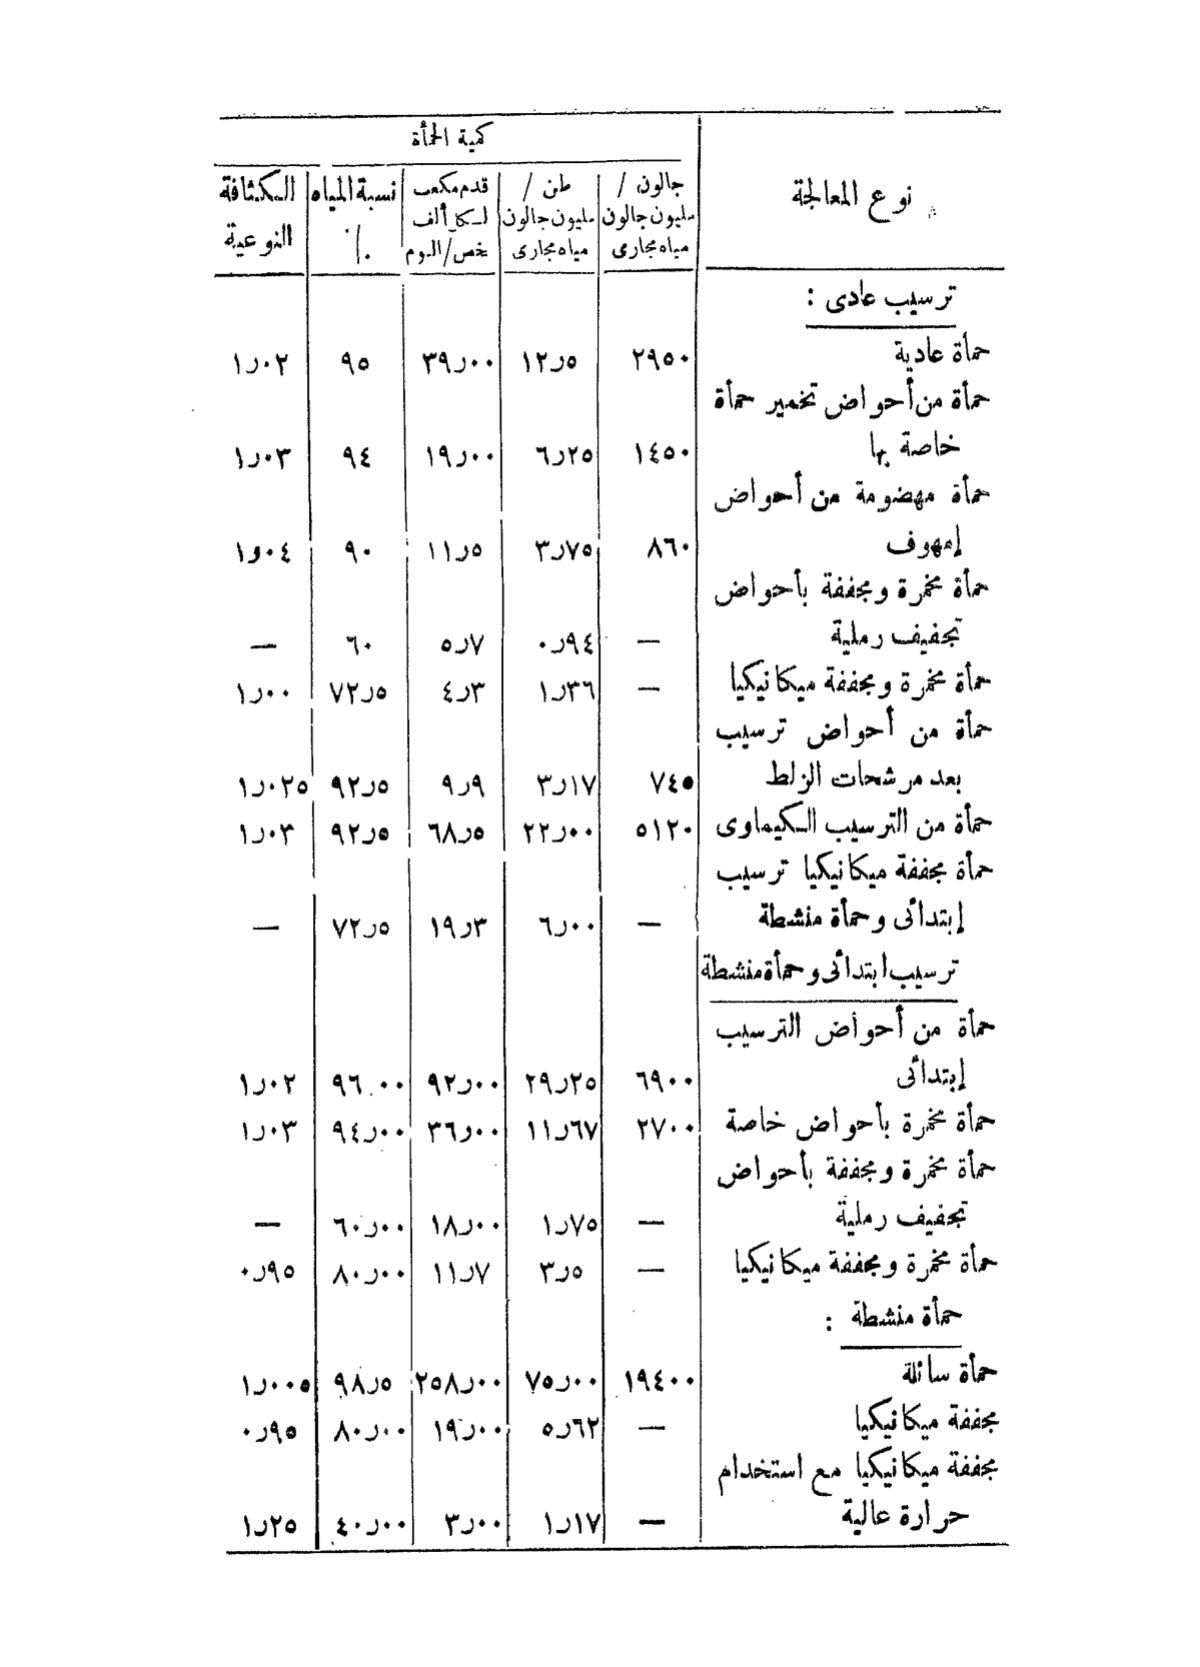 كمية الحمأة
نوع المعالجة | جالون / مليون جالون مياه مجارى | طن / مليون جالون مياه مجارى | قدم مكعب لكل ألف شخص/اليوم | نسبة المياه ٪ | الكثافة النوعية
ترسيب عادى :
حمأة عادية | ٢٩٥٠ | ١٢٫٥ | ٣٩٫٠٠ | ٩٥ | ١٫٠٢
حمأة من أحواض تخمير حمأة
خاصة بها | ١٤٥٠ | ٦٫٢٥ | ١٩٫٠٠ | ٩٤ | ١٫٠٣
حمأة مهضومة من أحواض
إمهوف | ٨٦٠ | ٣٫٧٥ | ١١٫٥ | ٩٠ | ١٫٠٤
حمأة مخمرة ومجففة بأحواض
تجفيف رملية | — | ٠٫٩٤ | ٥٫٧ | ٦٠ | —
حمأة مخمرة ومجففة ميكانيكيا | — | ١٫٣٦ | ٤٫٣ | ٧٢٫٥ | ١٫٠٠
حمأة من أحواض ترسيب
بعد مرشحات الزلط | ٧٤٥ | ٣٫١٧ | ٩٫٩ | ٩٢٫٥ | ١٫٠٢٥
حمأة من الترسيب الكيماوى | ٥١٢٠ | ٢٢٫٠٠ | ٦٨٫٥ | ٩٢٫٥ | ١٫٠٣
حمأة مجففة ميكانيكيا ترسيب
إبتدائى وحمأة منشطة | — | ٦٫٠٠ | ١٩٫٣ | ٧٢٫٥ | —
ترسيب ابتدائى وحمأة منشطة
حمأة من أحواض الترسيب
إبتدائى | ٦٩٠٠ | ٢٩٫٢٥ | ٩٢٫٠٠ | ٩٦٫٠٠ | ١٫٠٢
حمأة مخمرة بأحواض خاصة | ٢٧٠٠ | ١١٫٦٧ | ٣٦٫٠٠ | ٩٤٫٠٠ | ١٫٠٣
حمأة مخمرة ومجففة بأحواض
تجفيف رملية | — | ١٫٧٥ | ١٨٫٠٠ | ٦٠٫٠٠ | —
حمأة مخمرة ومجففة ميكانيكيا | — | ٣٫٥ | ١١٫٧ | ٨٠٫٠٠ | ٠٫٩٥
حمأة منشطة :
حمأة سائلة | ١٩٤٠٠ | ٧٥٫٠٠ | ٢٥٨٫٠٠ | ٩٨٫٥ | ١٫٠٠٥
مجففة ميكانيكيا | — | ٥٫٦٢ | ١٩٫٠٠ | ٨٠٫٠٠ | ٠٫٩٥
مجففة ميكانيكيا مع استخدام
حرارة عالية | — | ١٫١٧ | ٣٫٠٠ | ٤٠٫٠٠ | ١٫٢٥